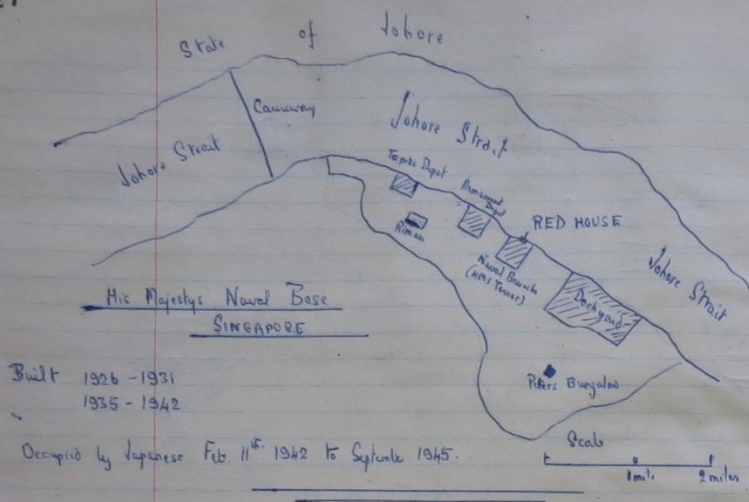 State of Johore
Causeway
Johore Strait
Johore Strait
Torpedo Depot
Armament
Depot
Rimau
RED HOUSE
Naval Barracks
(HMS Terror)
Johore Strait
Dockyard
His Majestys Naval Base
SINGAPORE
Built 1926 - 1931
1935 - 1942
Peters Bungalow
Occupied by Japanese Feb. 11th 1942 to September 1945.
Scale
1 mile 2 miles